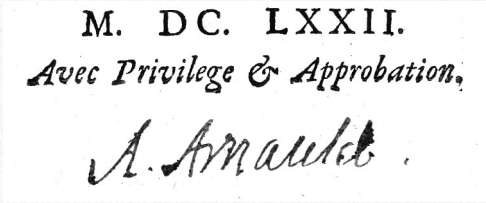 M. DC. LXXII.
Avec Privilege & Approbation.
A. Arnauld.